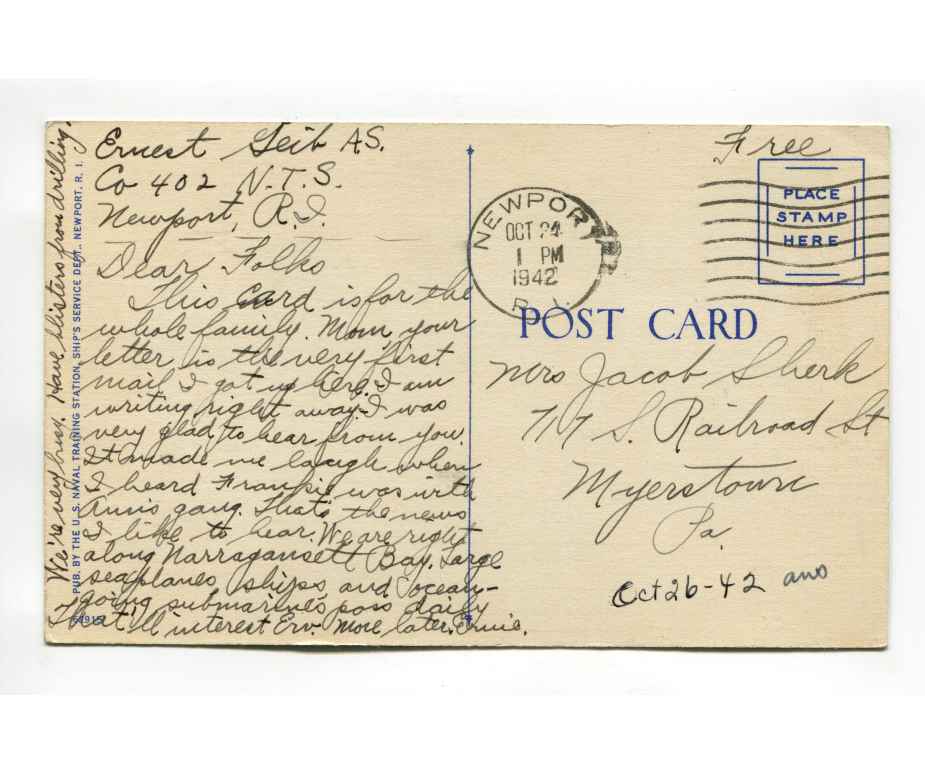 Ernest Seib AS.
Co 402 N.T.S.
Newport, R.I.
Dear Folks
This card is for the
whole family. Mom your
letter is the very first
mail I got up here. I am
writing right away. I was
very glad to hear from you.
It made me laugh when
I heard Fransie was with
Ann's gang. Thats the news
I like to hear. We are right
along Narragansett Bay. Large
seaplanes, ships, and ocean-
going submarines pass daily
That'll interest Erv. More later. Ernie.
We're very busy. Have blisters from drilling.
PUB. BY THE U. S. NAVAL TRAINING STATION, SHIP'S SERVICE DEPT., NEWPORT, R. I.
Free
PLACE
STAMP
HERE
NEWPORT
OCT 24
1 PM
1942
R. I.
POST CARD
Mrs Jacob Sherk
717 S. Railroad St
Myerstown
Pa.
Oct 26-42 ans